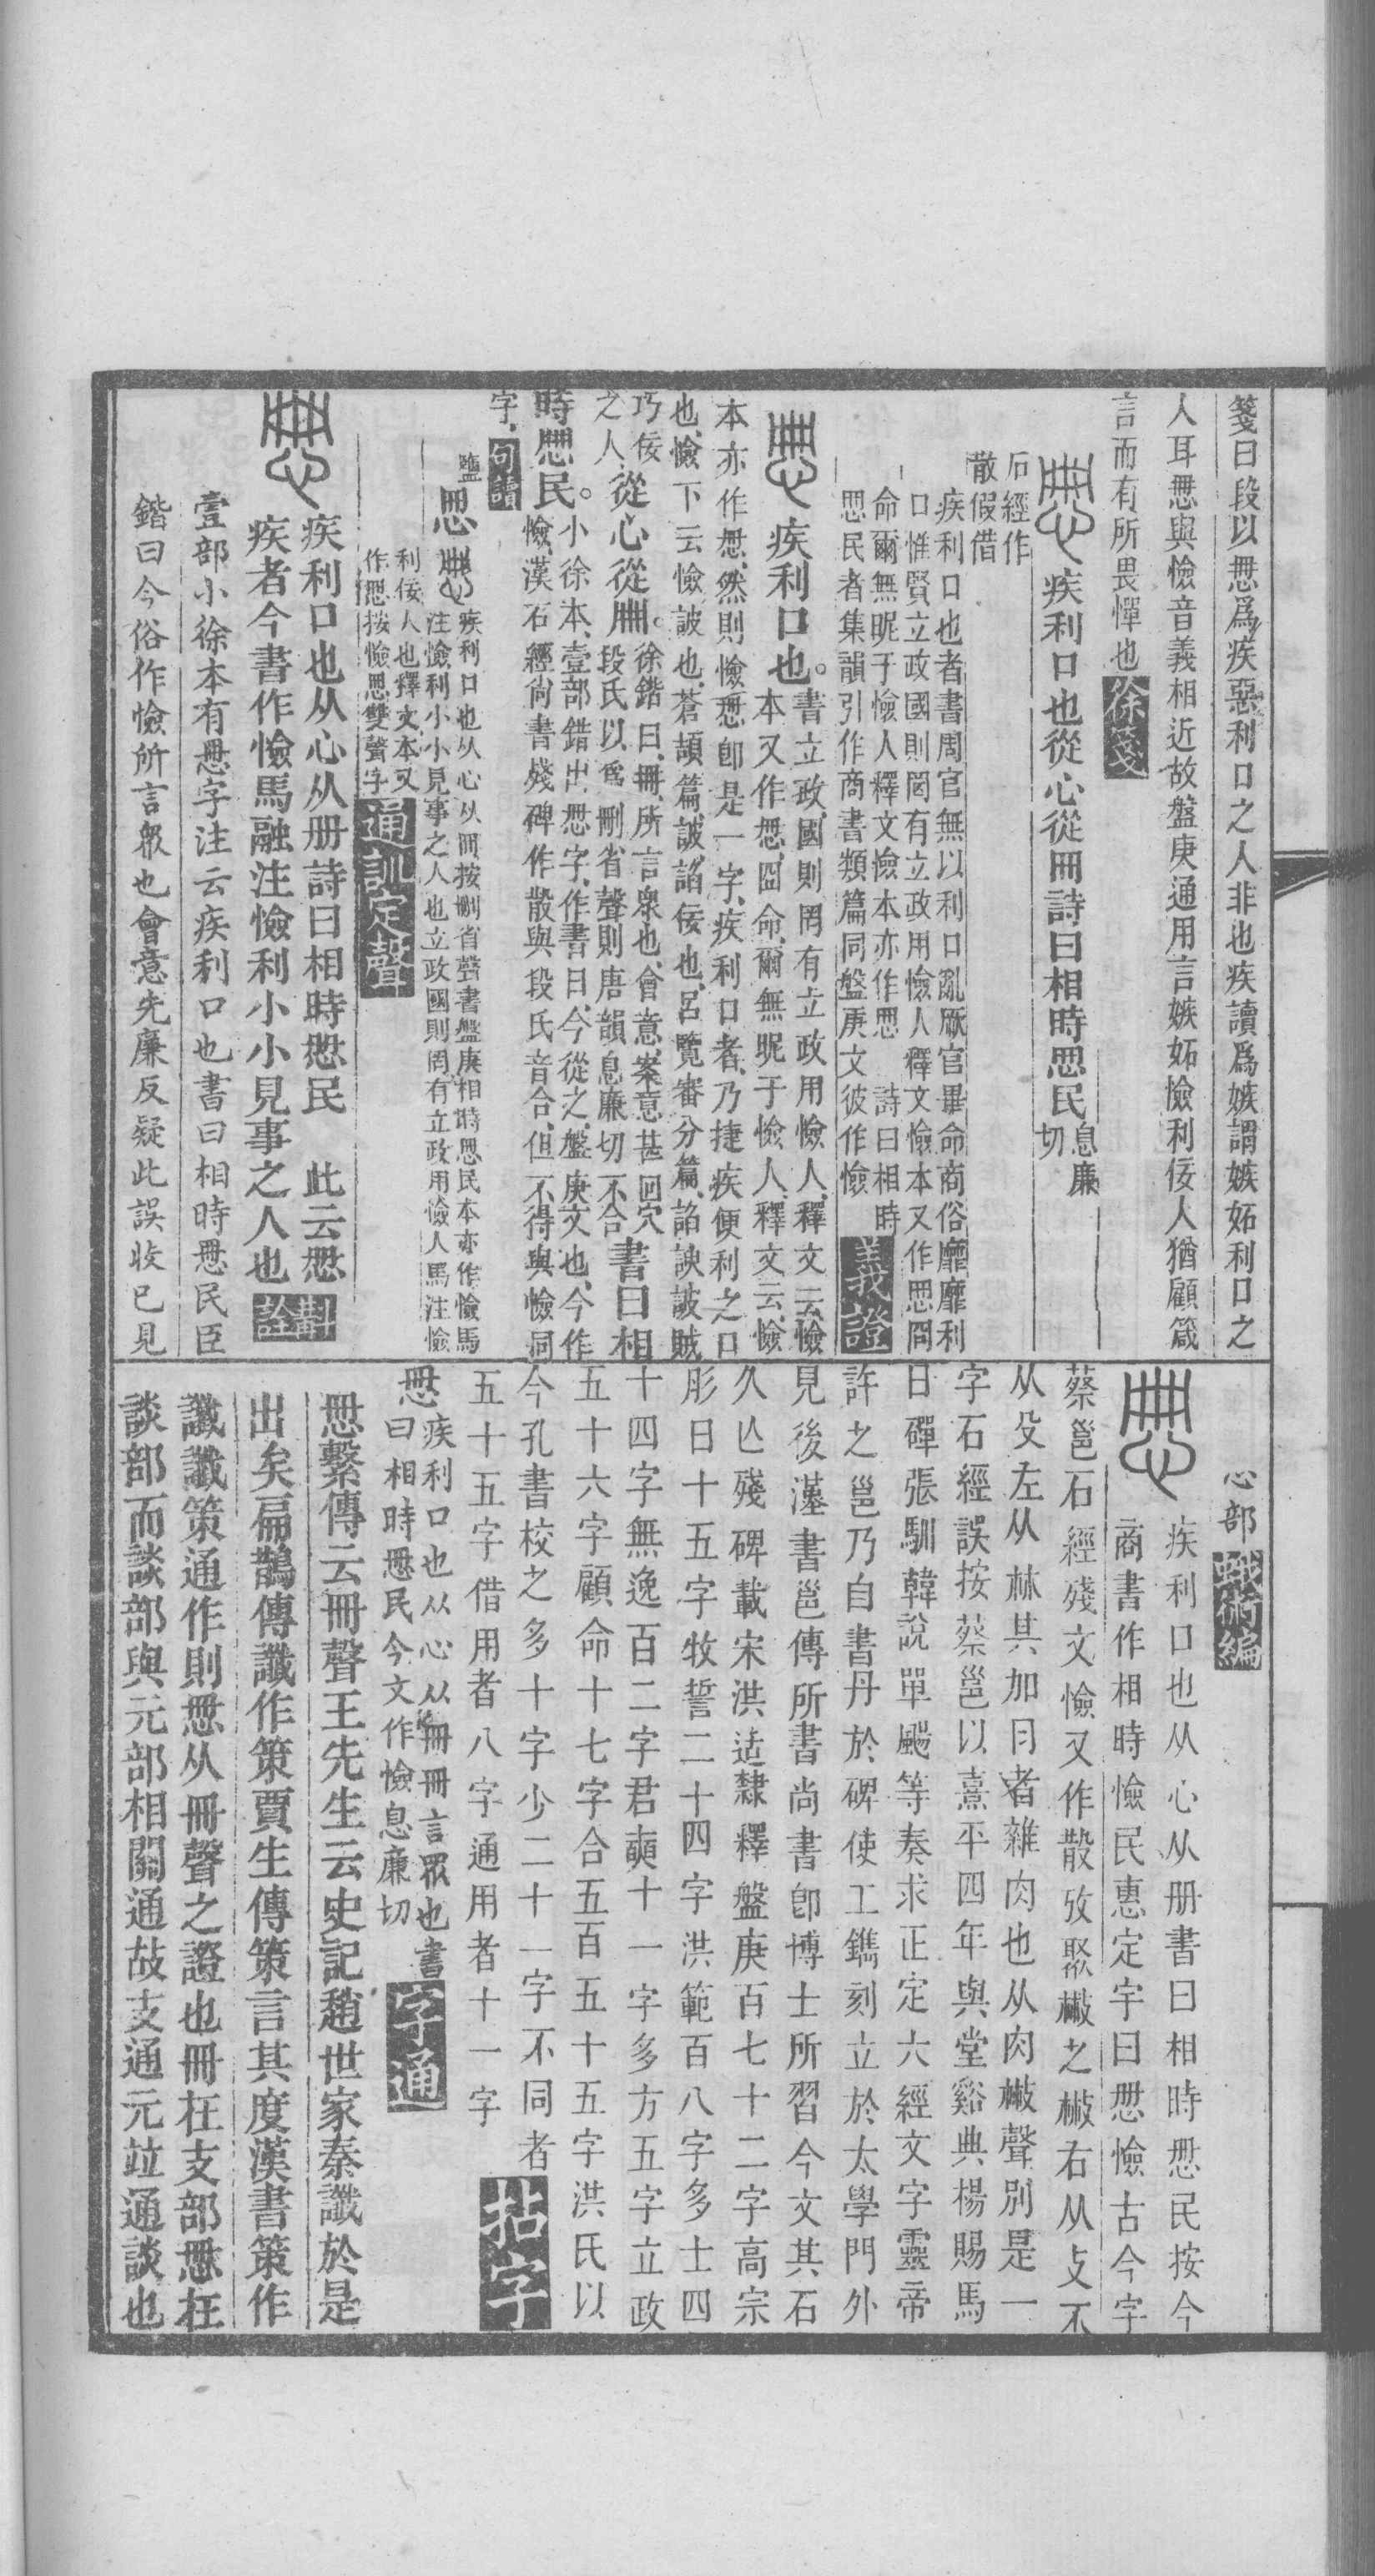 箋曰段以𢘅爲疾惡利口之人非也疾讀爲嫉謂嫉妬利口之
人耳𢘅與憸音義相近故盤庚通用言嫉妬憸利佞人猶顧箴
言而有所畏憚也徐箋
疾利口也從心從冊詩曰相時𢘅民息廉
切
石經作
散假借
疾利口也者書周官無以利口亂厥官畢命商俗靡靡利
口惟賢立政國則罔有立政用憸人釋文憸本又作𢘅冏
命爾無昵于憸人釋文憸本亦作𢘅 詩曰相時
𢘅民者集韻引作商書類篇同盤庚文彼作憸義證
疾利口也。書立政國則罔有立政用憸人釋文云憸
本又作𢘅冏命爾無昵于憸人釋文云憸
本亦作𢘅然則憸𢘅卽是一字疾利口者乃捷疾便利之口
也憸下云憸詖也蒼頡篇詖諂佞也呂覽審分篇諂諛詖賊
巧佞
之人從心從冊。徐鍇曰冊所言衆也會意案意甚回穴
段氏以爲刪省聲則唐韻息廉切不合書曰相
時𢘅民。小徐本壹部錯出𢘅字作書曰今從之盤庚文也今作
憸漢石經尙書殘碑作散與段氏音合但不得與憸同
字句讀
鹽
𢘅疾利口也从心从冊按刪省聲書盤庚相時𢘅民本亦作憸馬
注憸利小小見事之人也立政國則罔有立政用憸人馬注憸
利佞人也釋文本又
作𢘅按憸𢘅雙聲字通訓定聲
疾利口也从心从册詩曰相時𢘅民 此云𢘅
疾者今書作憸馬融注憸利小小見事之人也斠詮
壹部小徐本有𢘅字注云疾利口也書曰相時𢘅民臣
鍇曰今俗作憸所言衆也會意先廉反疑此誤收已見
心部蛾術編
疾利口也从心从册書曰相時𢘅民按今
商書作相時憸民惠定宇曰𢘅憸古今字
蔡邕石經殘文憸又作散攷𣀙㪔之㪔右从攴不
从殳左从𣏟其加月者雜肉也从肉㪔聲別是一
字石經誤按蔡邕以熹平四年與堂谿典楊賜馬
日磾張馴韓說單颺等奏求正定六經文字靈帝
許之邕乃自書丹於碑使工鐫刻立於太學門外
見後漢書邕傳所書尚書卽博士所習今文其石
久亾殘碑載宋洪适隸釋盤庚百七十二字高宗
肜日十五字牧誓二十四字洪範百八字多士四
十四字無逸百二字君奭十一字多方五字立政
五十六字顧命十七字合五百五十五字洪氏以
今孔書校之多十字少二十一字不同者
五十五字借用者八字通用者十一字拈字
𢘅疾利口也从心从冊冊言眾也書
曰相時𢘅民今文作憸息廉切字通
𢘅繫傳云冊聲王先生云史記趙世家秦讖於是
出矣扁鵲傳讖作策賈生傳策言其度漢書策作
讖讖策通作則𢘅从冊聲之證也冊在支部𢘅在
談部而談部與元部相關通故支通元竝通談也